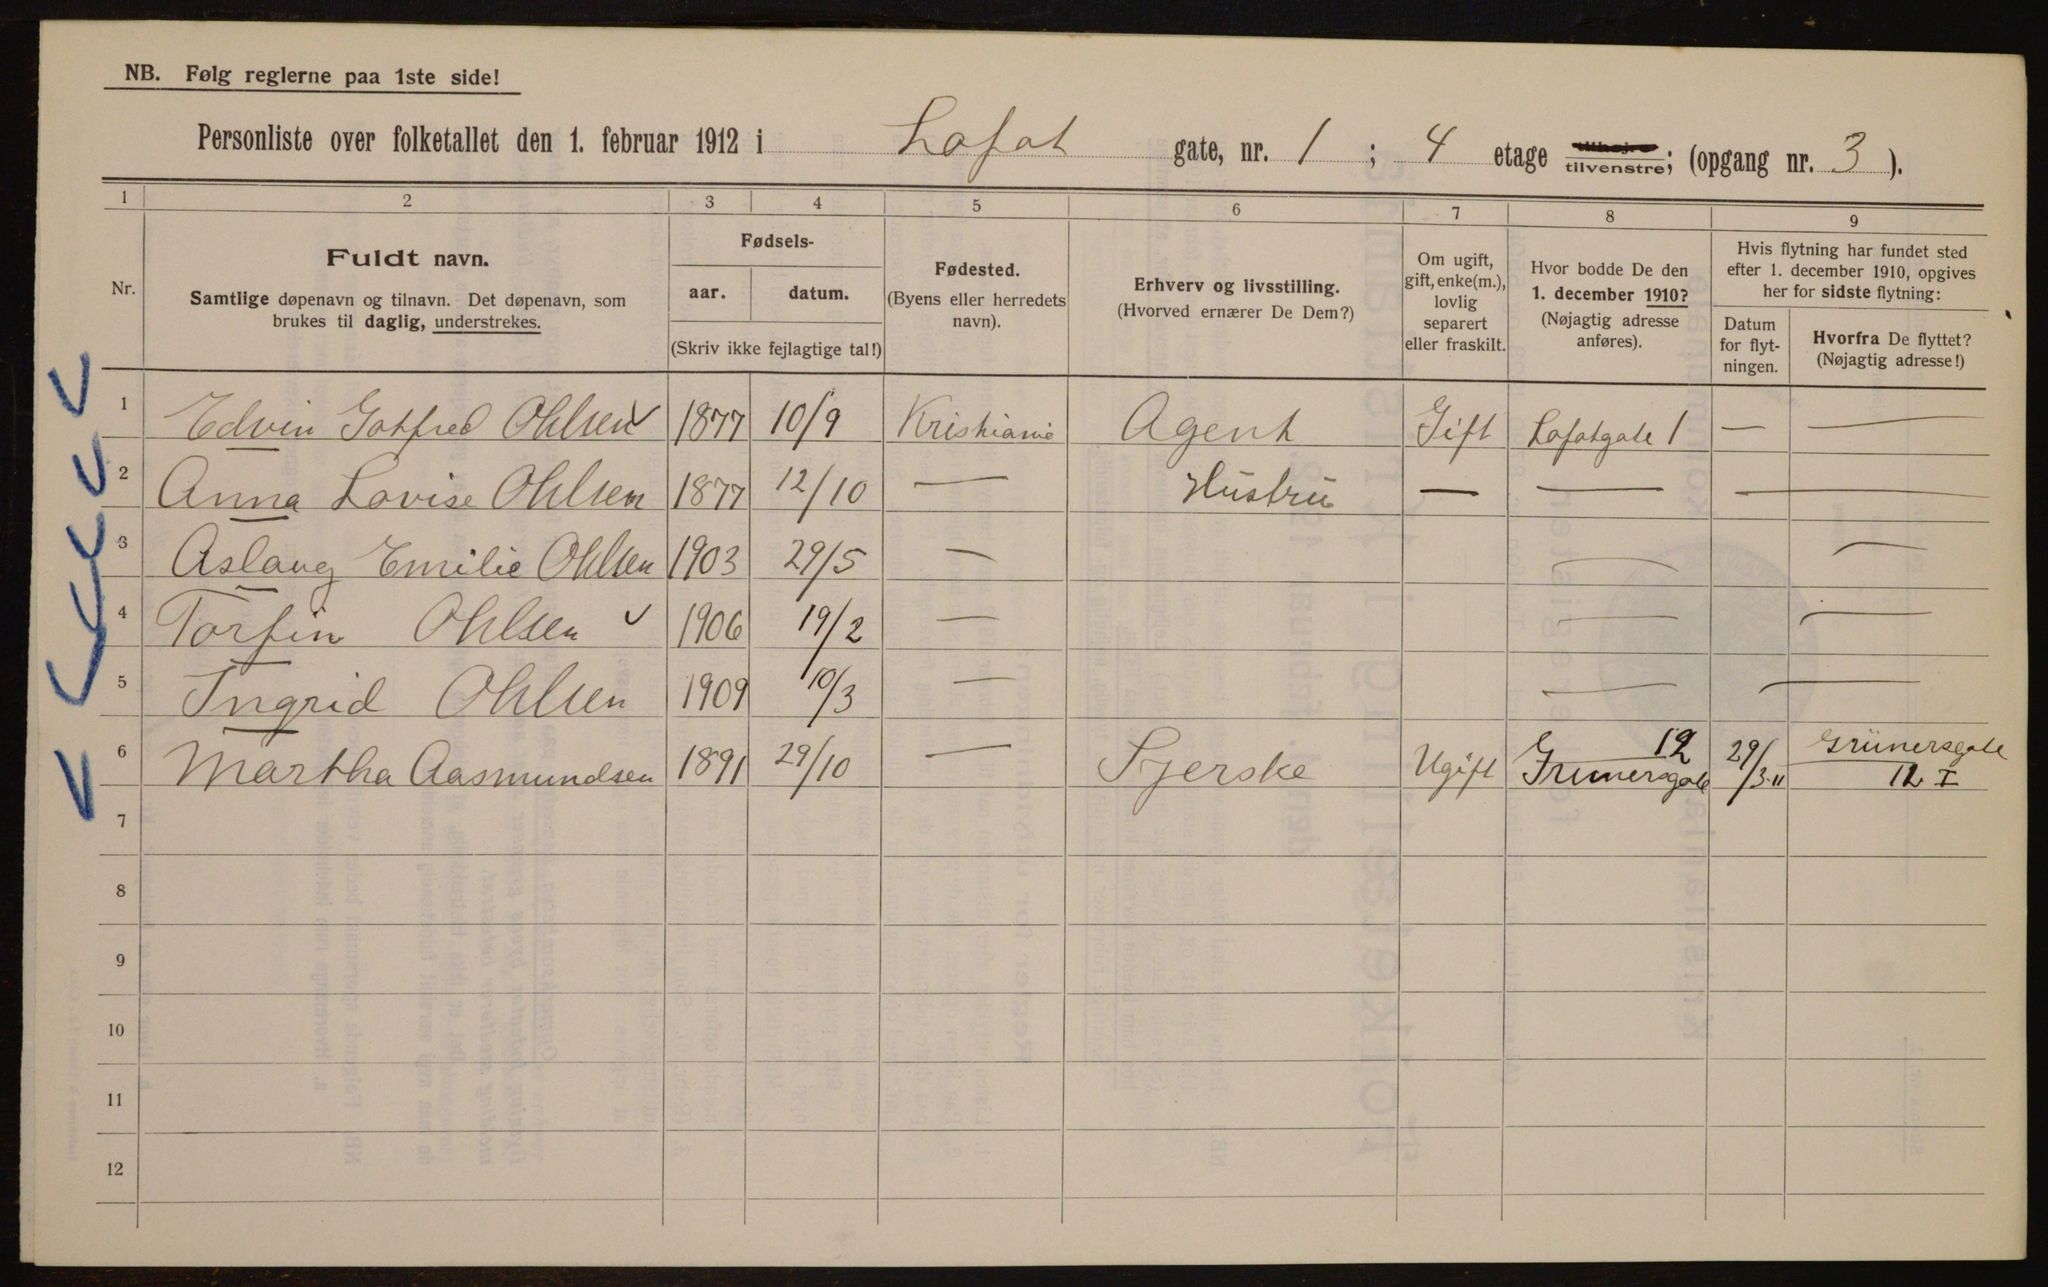 NB. Følg reglerne paa 1ste side!
Personliste over folketallet den 1. februar 1912 i Lofot gate, nr. 1 ; 4 etage tilhøjre tilvenstre; (opgang nr. 3 ).
1 2 3 4 5 6 7 8 9
Nr.
Fuldt navn.
Samtlige døpenavn og tilnavn. Det døpenavn, som
brukes til daglig, understrekes.
Fødsels-
aar. datum.
(Skriv ikke fejlagtige tal!)
Fødested.
(Byens eller herredets
navn).
Erhverv og livsstilling.
(Hvorved ernærer De Dem?)
Om ugift,
gift, enke(m.),
lovlig
separert
eller fraskilt.
Hvor bodde De den
1. december 1910?
(Nøjagtig adresse
anføres).
Hvis flytning har fundet sted
efter 1. december 1910, opgives
her for sidste flytning:
Datum
for flyt-
ningen.
Hvorfra De flyttet?
(Nøjagtig adresse!)
1 Edvin Gotfred Ohlsen 1877 10/9 Kristiania Agent Gift Lofotgate 1 — —
2 Anna Lovise Ohlsen 1877 12/10 — Hustru — — —
3 Aslaug Emilie Ohlsen 1903 29/5 — — —
4 Torfin Ohlsen 1906 19/2 — — —
5 Ingrid Ohlsen 1909 10/3 — — —
6 Martha Aasmundsen 1891 29/10 — Syerske Ugift Grunersgate 12 29/3.11 Grünersgate 12 I
7
8
9
10
11
12